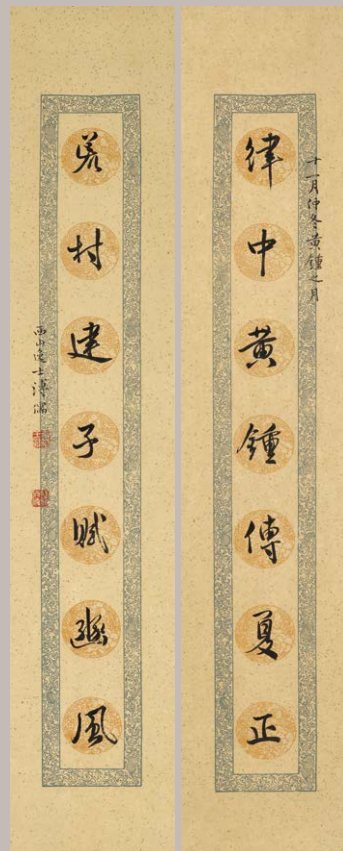 十一月仲冬黃鍾之月
律中黃鍾傳夏正
荒村建子賦豳風
西山逸士溥儒